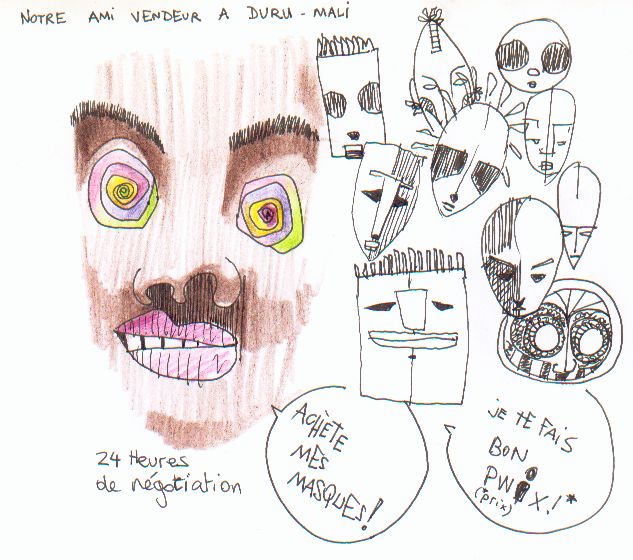 NOTRE AMI VENDEUR A DURU - MALI
ACHÈTE
MES
MASQUES!
JE TE FAIS
BON
PWIX!*
(prix)
24 Heures
de négotiation